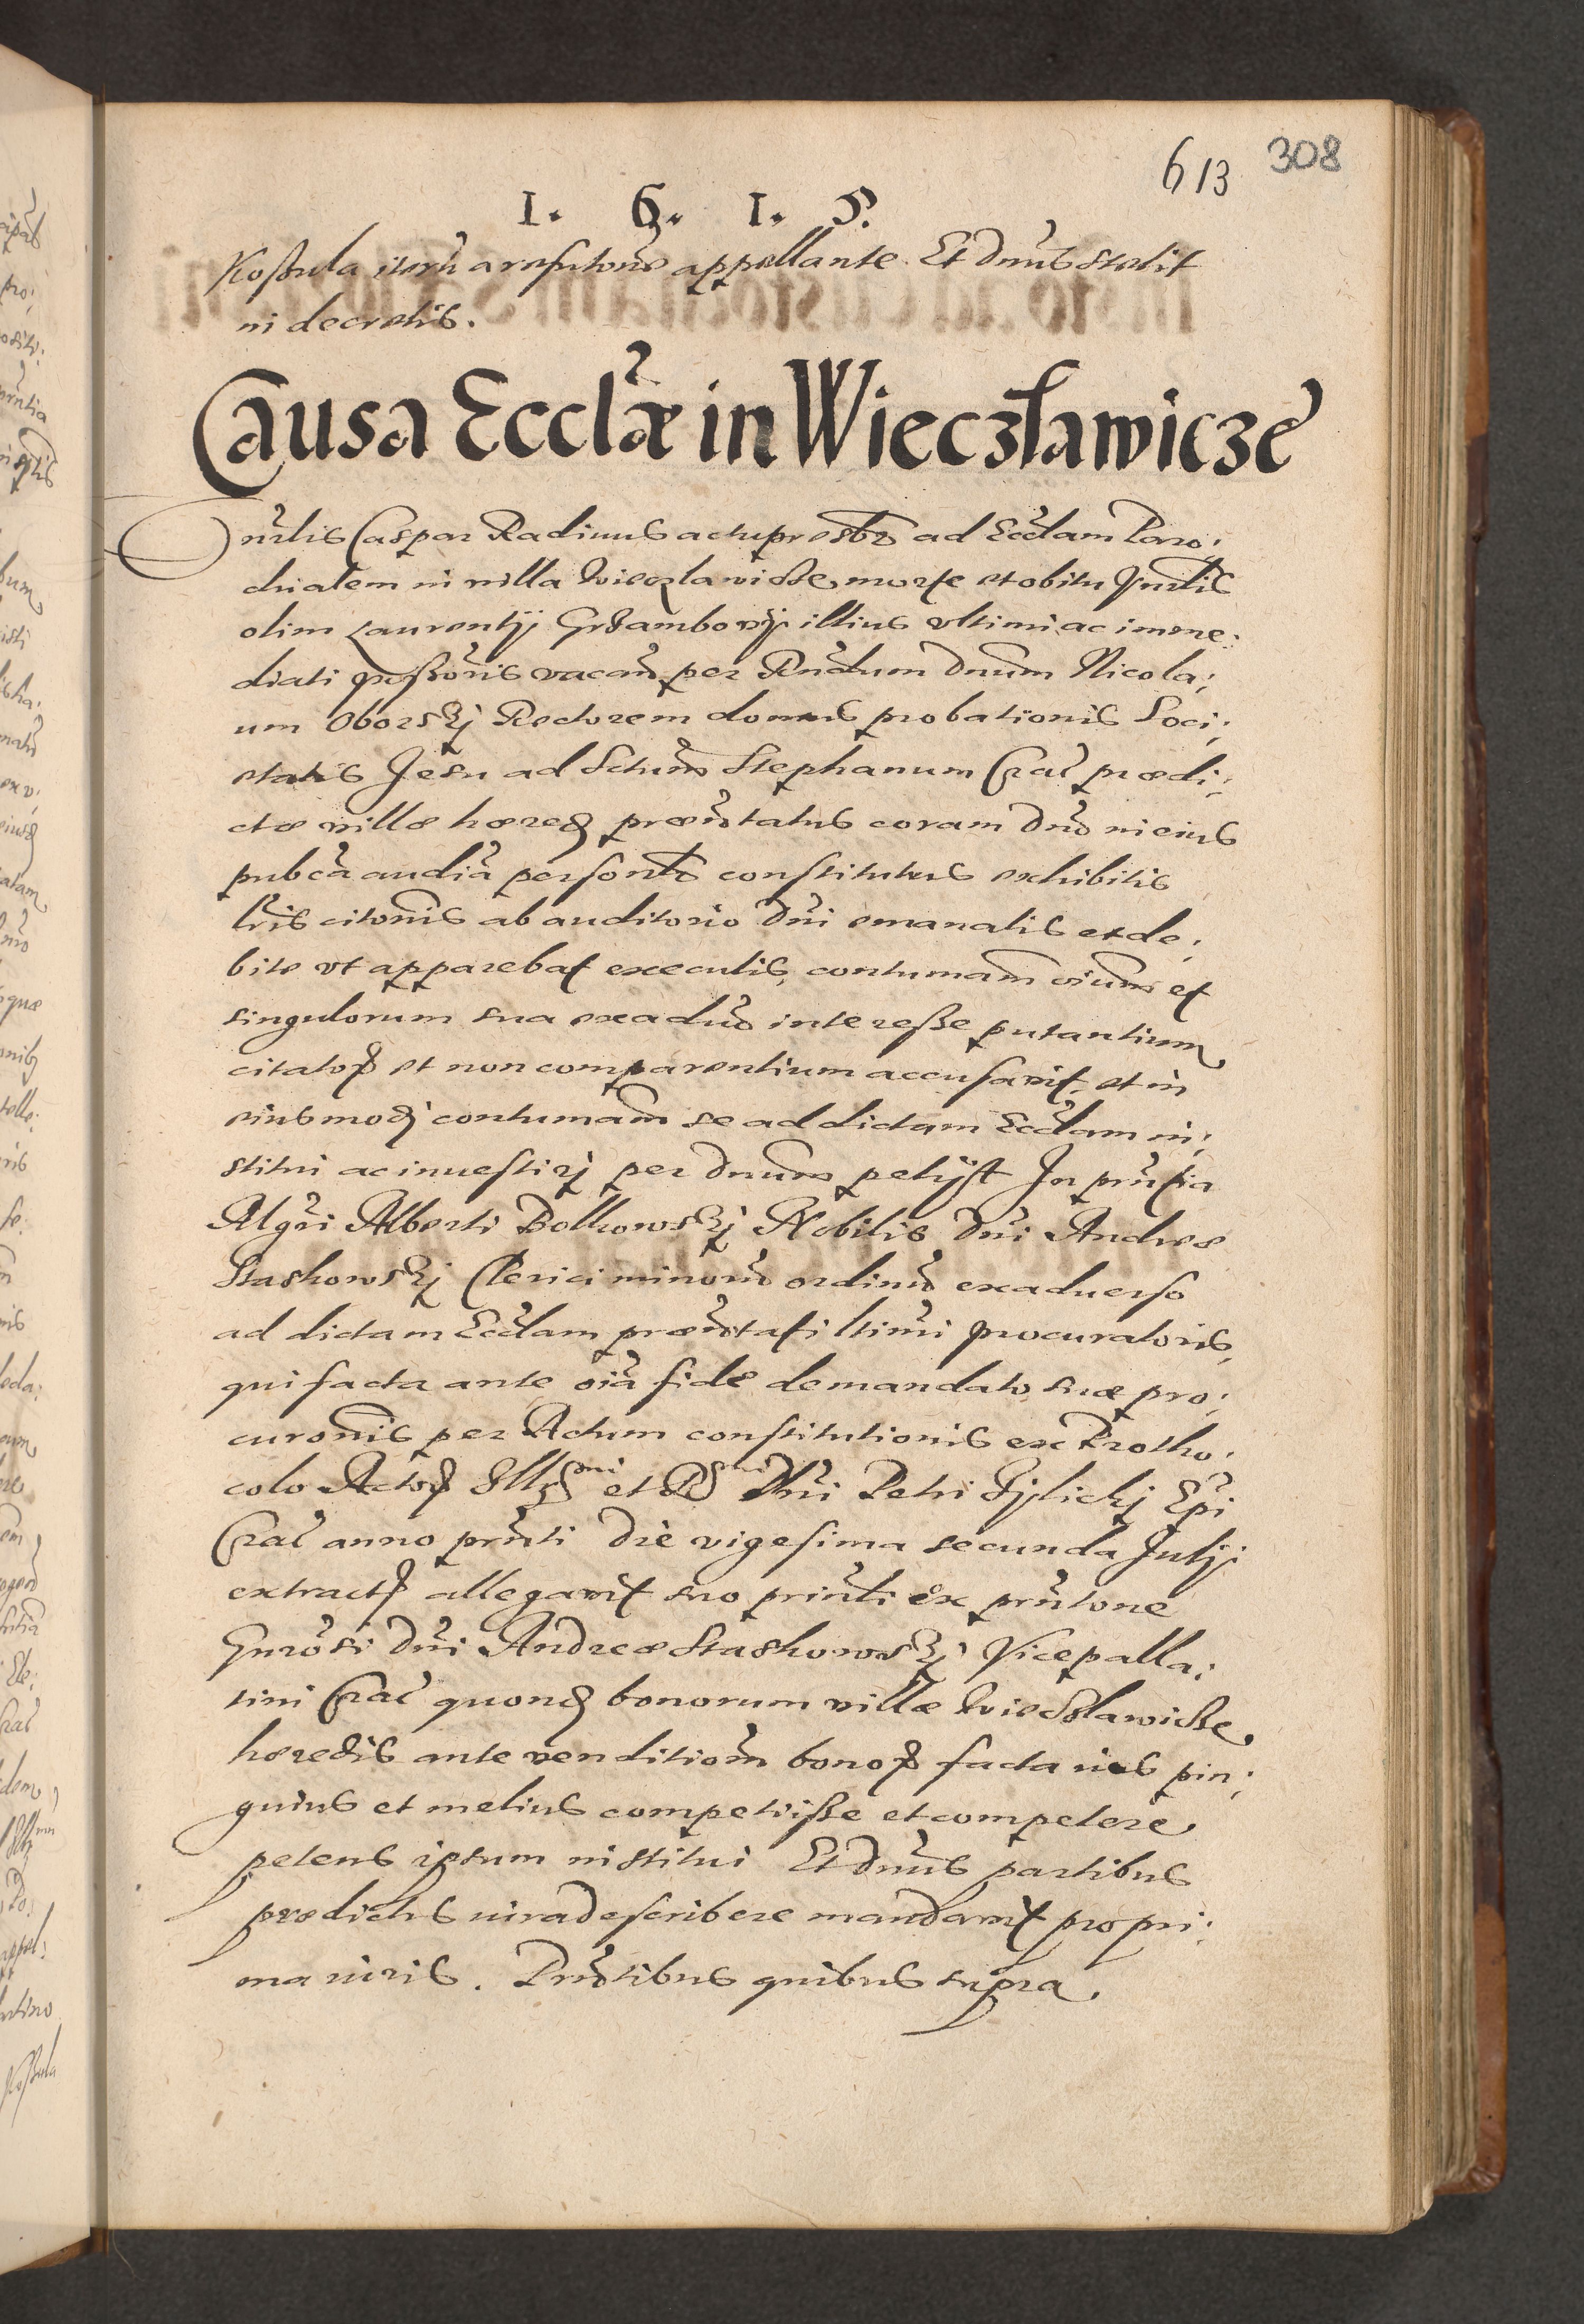 613 308
1. 6. 1. 5.
Koßula iterũ a refutone appellante. Et Dnus stetit
in decretis.
Causa Eccl̃æ in Wieczławicze
Dnrlis Caspar Radinus actu presb̃r ad Eccl̃am Paro:
chialem in villa Wieczlawicze, morte et obitu Vnrlis
olim Laurentij Grzambowij illius vltimi ac imme:
diati pssoris vacañ per Rndum Dnum Nicola:
um Oborskj Rectorem domus probationis Soci:
etatis Jesu ad Sctum Stephanum Crac̃ prædi:
ctæ villæ hæred præntatus coram Dno in eius
pubca audia personlr constitutus exhibitis
lris citonis ab auditorio Dni emanatis et de:
bite vt apparebat executis, contumam oium et
singulorum sua exaduo interesse putantium
citator et non comparentium accusavit, et in
eiusmodi contumam se ad dictam Eccl̃am in:
stitui ac inuestirj per Dnum petijt In prntia
Mgri Alberti Bolkowskj Nobilis Dni Andreæ
Staskowskj Clerici minorũ ordinũ exaduerso
ad dictam Eccl̃am præntati ltimi procuratoris,
qui facta ante oia fide de mandato suæ pro:
curonis per Actum constitutionis ex Protho:
colo Actor Illmi et Rmi Dni Petri Tylickj Epi
Crac̃ anno prnti die vigesima secunda Julij
extract allegavit suo prinli ex prntone
Gnrosi Dni Andreæ Staskowskj Vicepalla:
tini Crac̃ quond bonorum villæ Wieczlawicze,
hæredis ante venditiom bonor facta ius pin:
guius et melius competiisse et competere,
petens ipsum institui Et Dnus partibus
prædictis iura describere mandavit pro pri:
ma iuris. Prntibus quibus supra.